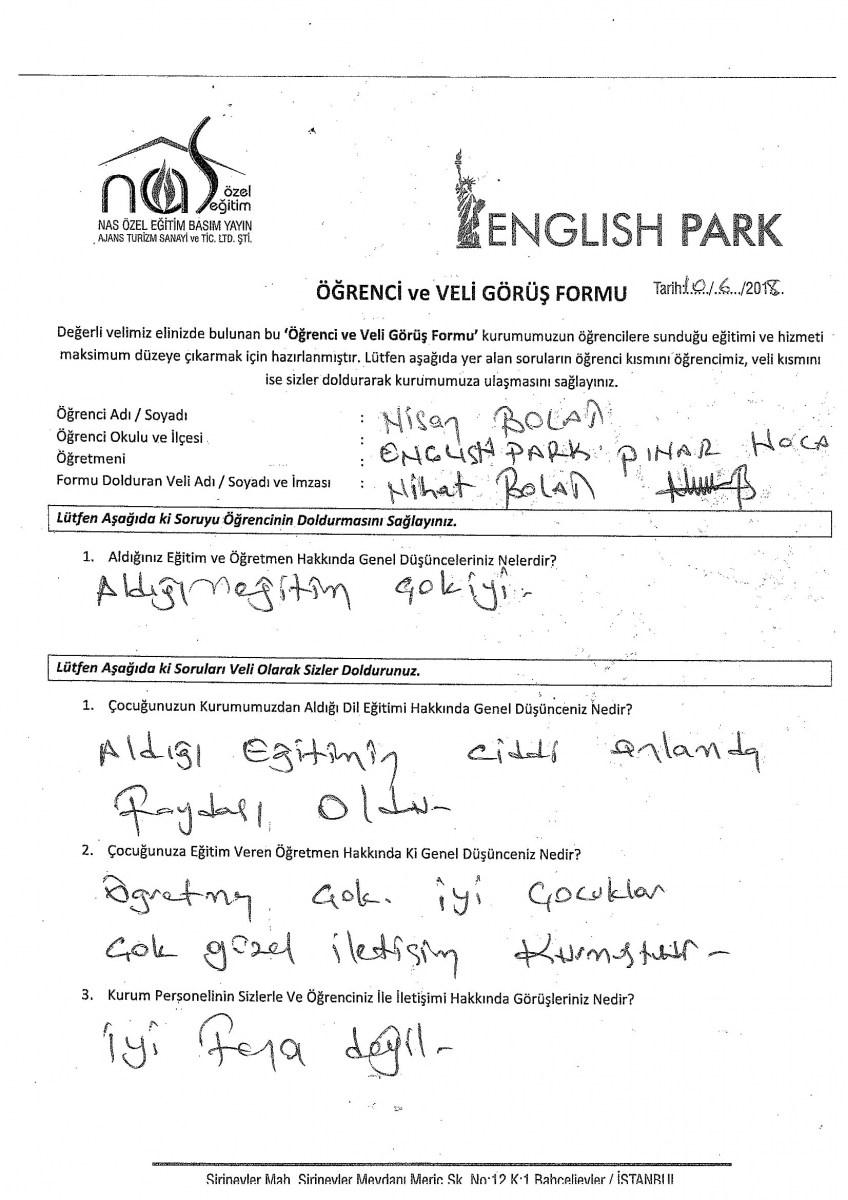 nas özel eğitim
NAS ÖZEL EĞİTİM BASIM YAYIN
AJANS TURİZM SANAYİ ve TİC. LTD. ŞTİ.
ENGLISH PARK
ÖĞRENCİ ve VELİ GÖRÜŞ FORMU Tarih:10/.6../2018.
Değerli velimiz elinizde bulunan bu ‘Öğrenci ve Veli Görüş Formu’ kurumumuzun öğrencilere sunduğu eğitimi ve hizmeti
maksimum düzeye çıkarmak için hazırlanmıştır. Lütfen aşağıda yer alan soruların öğrenci kısmını öğrencimiz, veli kısmını
ise sizler doldurarak kurumumuza ulaşmasını sağlayınız.
Öğrenci Adı / Soyadı : Nisan BOLAT
Öğrenci Okulu ve İlçesi :
Öğretmeni : ENGLISH PARK PINAR HOCA
Formu Dolduran Veli Adı / Soyadı ve İmzası : Nihat BOLAT
Lütfen Aşağıda ki Soruyu Öğrencinin Doldurmasını Sağlayınız.
1. Aldığınız Eğitim ve Öğretmen Hakkında Genel Düşünceleriniz Nelerdir?
Aldığım eğitim çok iyi.-
Lütfen Aşağıda ki Soruları Veli Olarak Sizler Doldurunuz.
1. Çocuğunuzun Kurumumuzdan Aldığı Dil Eğitimi Hakkında Genel Düşünceniz Nedir?
Aldığı Eğitimin ciddi anlamda
Faydası Oldu-
2. Çocuğunuza Eğitim Veren Öğretmen Hakkında Ki Genel Düşünceniz Nedir?
Öğretmen Çok. iyi Çocuklar
Çok güzel iletişim Kurmuştur -
3. Kurum Personelinin Sizlerle Ve Öğrenciniz İle İletişimi Hakkında Görüşleriniz Nedir?
iyi Fena değil-
Şirinevler Mah. Şirinevler Meydanı Meriç Sk. No:12 K:1 Bahçelievler / İSTANBUL